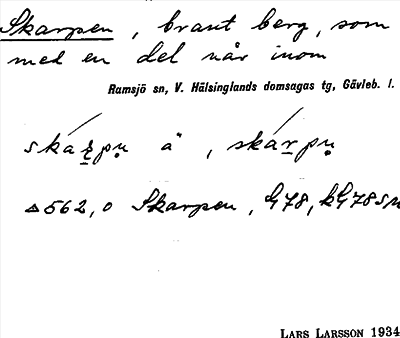 Skarpen, brant berg, som
med en del når inom
Ramsjö sn, V. Hälsinglands domsagas tg, Gävleb. l.
skárpṇ å, skárpṇ
562,0 Skarpen,
LARS LARSSON 1934